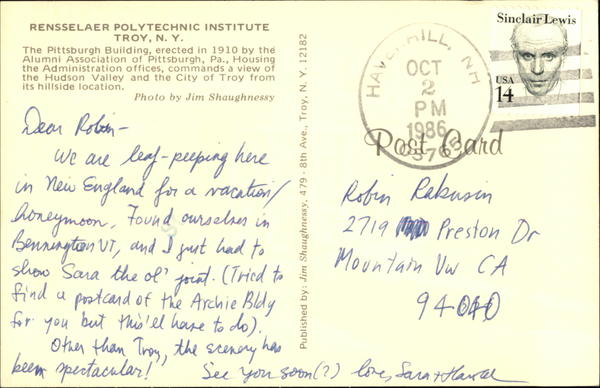 RENSSELAER POLYTECHNIC INSTITUTE
TROY, N. Y.
The Pittsburgh Building, erected in 1910 by the
Alumni Association of Pittsburgh, Pa., Housing
the Administration offices, commands a view of
the Hudson Valley and the City of Troy from
its hillside location.
Photo by Jim Shaughnessy
Dear Robin-
We are leaf-peeping here
in New England for a vacation/
honeymoon. Found ourselves in
Bennington VT, and I just had to
show Sara the ol' joint. (Tried to
find a postcard of the Archie Bldg
for you but this'll have to do).
Other than Troy, the scenery has
been spectacular!
See you soon(?) love, Sara +
Published by: Jim Shaughnessy, 479 - 8th Ave., Troy, N. Y. 12182
HAVERHILL, NH
OCT
2
PM
1986
03765
Sinclair Lewis
USA
14
Post Card
Robin Rabusin
2719 Preston Dr
Mountain Vw CA
94040